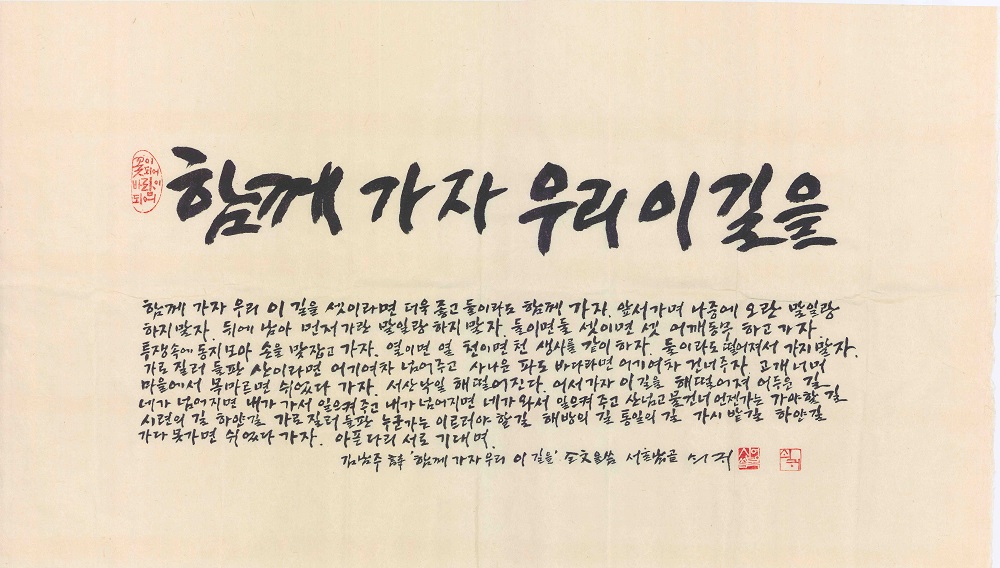 꽃이
되어
바람이
되어
함께 가자 우리 이 길을
함께 가자 우리 이 길을 셋이라면 더욱 좋고 둘이라도 함께 가자. 앞서가며 나중에 오란 말일랑
하지말자. 뒤에 남아 먼저 가란 말일랑 하지 말자. 둘이면 둘 셋이면 셋 어깨동무 하고 가자.
투쟁속에 동지 모아 손을 맞잡고 가자. 열이면 열 천이면 천 생사를 같이 하자. 둘이라도 떨어져서 가지 말자.
가로질러 들판 산이라면 어기여차 넘어주고 사나운 파도 바다라면 어기여차 건너주자. 고개 너머
마을에서 목마르면 쉬었다 가자. 서산낙일 해 떨어진다. 어서가자 이 길을 해 떨어져 어두운 길
네가 넘어지면 내가 가서 일으켜 주고 내가 넘어지면 네가 와서 일으켜 주고 산넘고 물건너 언젠가는 가야할 길
시련의 길 하얀길 가로질러 들판 누군가는 이르러야 할길 해방의 길 통일의 길 가시밭길 하얀길
가다 못가면 쉬었다 가자. 아픈 다리 서로 기대며.
김남주 '함께 가자 우리 이 길을' 全文을 씀